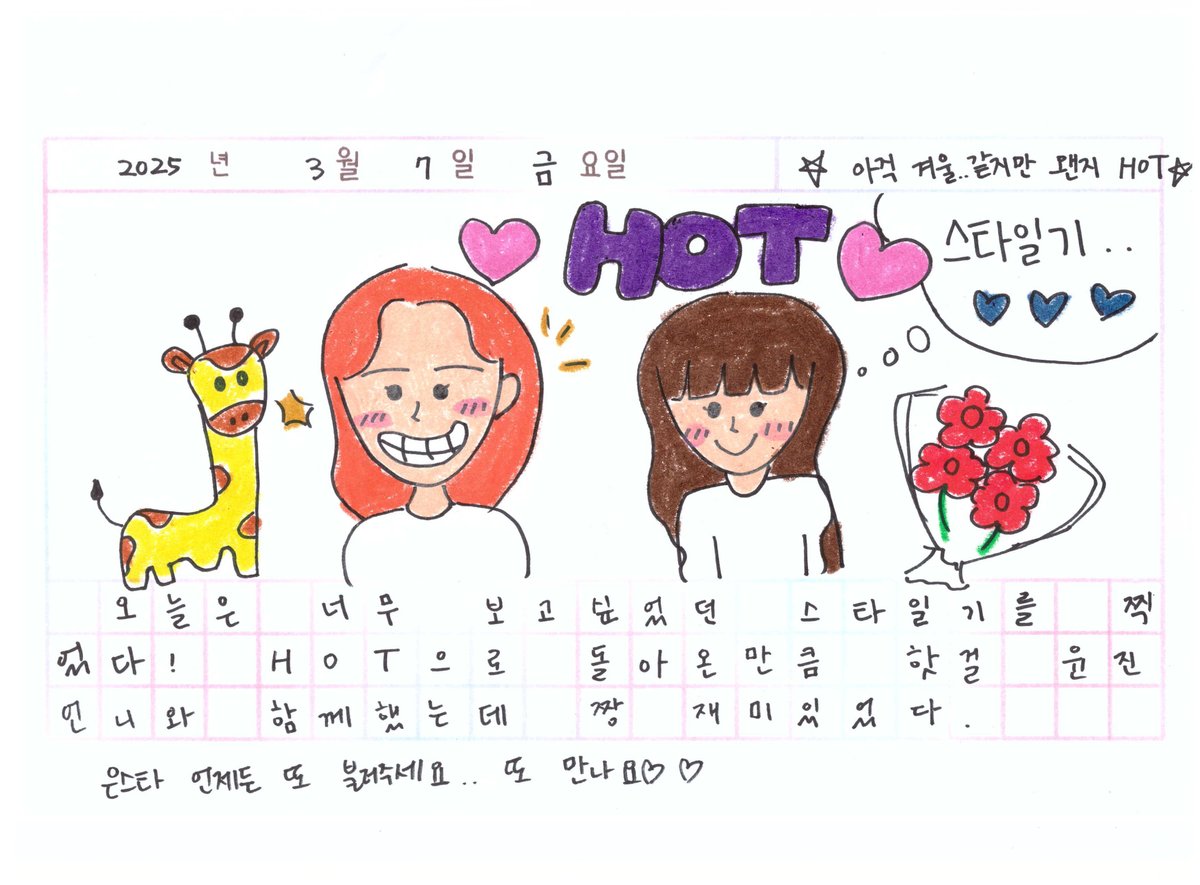 2025 년 3 월 7 일 금 요일
☆ 아직 겨울..같지만 왠지 HOT☆
HOT
스타일기..
오늘은 너무 보고싶었던 스타일기를 찍
었다! HOT으로 돌아온만큼 핫걸 윤진
언니와 함께했는데 짱 재미있었다.
은스타 언제든 또 불러주세요.. 또 만나요♡ ♡